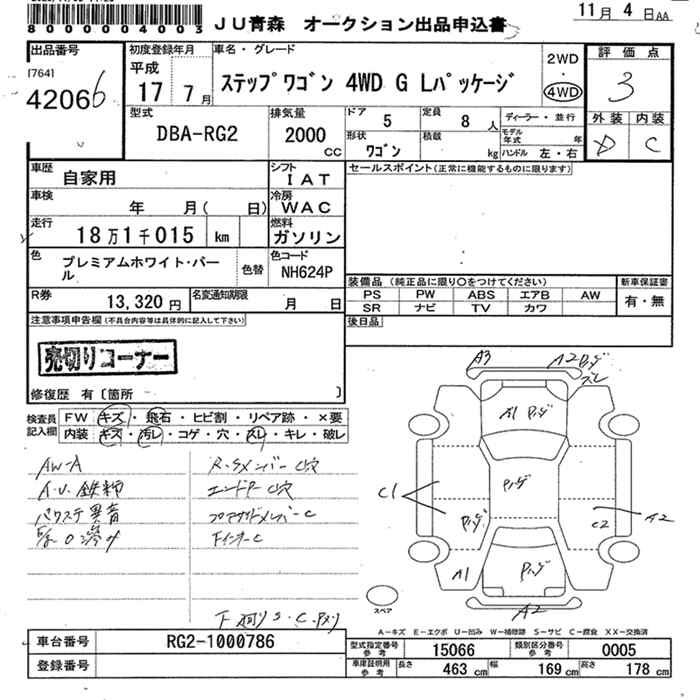 80000004003
JU青森 オークション出品申込書
11月 4日AA
出品番号
[764]
42066
初度登録年月
平成
17 7月
車名・グレード
ステップワゴン 4WD G Lパッケージ
2WD
・
4WD
評価点
3
外装 内装
D C
型式
DBA-RG2
排気量
2000
CC
ドア
5
定員
8 人
形状
ワゴン
積載
kg
ディーラー・並行
モデル年式 年
ハンドル 左・右
車歴
自家用
シフト
IAT
車検
年 月( 日)
冷房
WAC
走行
18万1千015 km
燃料
ガソリン
色
プレミアムホワイト・パール
色替
色コード
NH624P
R券
13,320円
名変通知期限
月 日
セールスポイント(正常に機能するものに限ります)
装備品 (純正品に限り○をつけてください)
PS PW ABS エアB AW
SR ナビ TV カワ
新車保証書
有・無
後日品
注意事項申告欄(不具合内容等は具体的に記入して下さい)
売切りコーナー
修復歴 有〔箇所 〕
検査員記入欄
FW キズ・飛石・ヒビ割・リペア跡・×要
内装 キズ・汚レ・コゲ・穴・スレ・キレ・破レ
AW-A
A.U.鉄粉
パワステ異音
R.Sメンバー C穴
エンドP C穴
FインナーC
A3
A2
A1
C1
C2
A2
A1
A2
スペア
A－キズ E－エクボ U－凹み W－補修跡 S－サビ C－腐食 XX－交換済
車台番号 RG2-1000786
登録番号
型式指定番号 参考 15066
類別区分番号 参考 0005
車庫証明用 参考 長さ 463 cm 幅 169 cm 高さ 178 cm